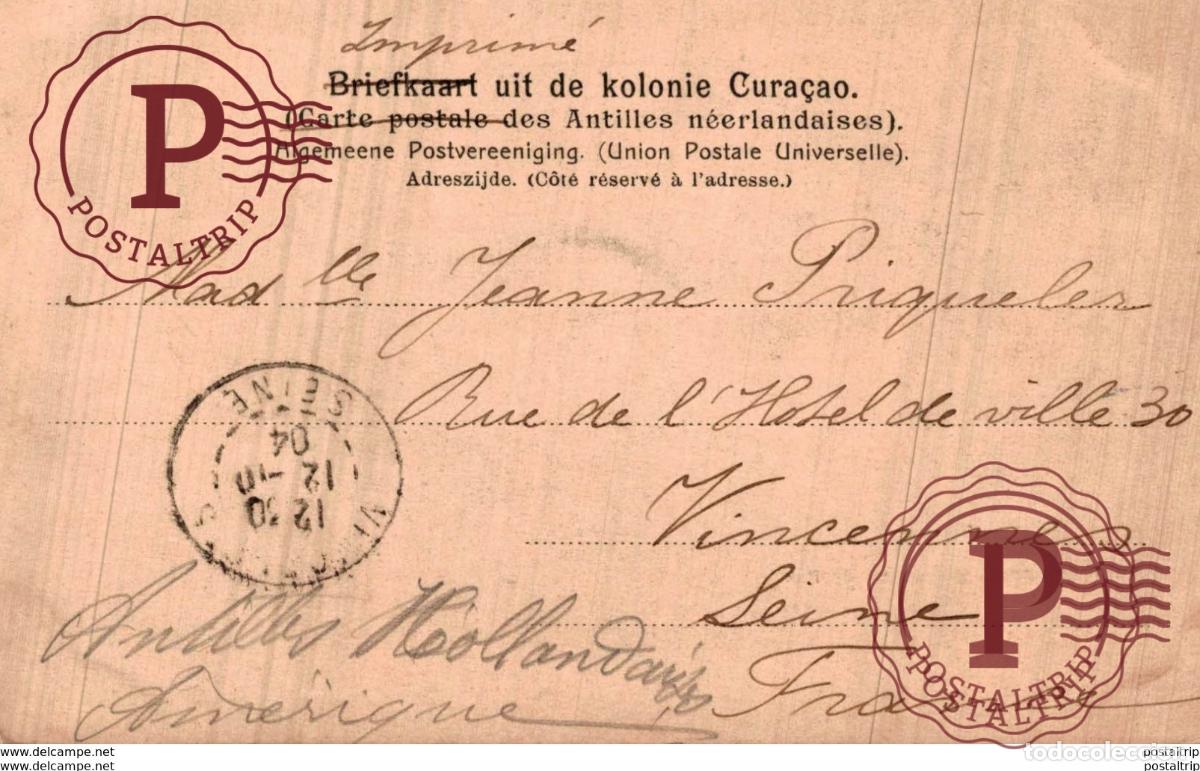 Imprimé
Briefkaart uit de kolonie Curaçao.
(Carte postale des Antilles néerlandaises).
Algemeene Postvereeniging. (Union Postale Universelle).
Adreszijde. (Côté réservé à l'adresse.)
P
POSTALTRIP
Madlle Jeanne Priqueler
Rue de l'Hotel de ville 30
Vincennes
Seine
France
SEINE
04
12 -10
12 30
Antilles Hollandaises
Amérique
P
POSTALTRIP
POSTALTRIP
todocoleccion
www.delcampe.net
postaltrip
www.delcampe.net
postaltrip